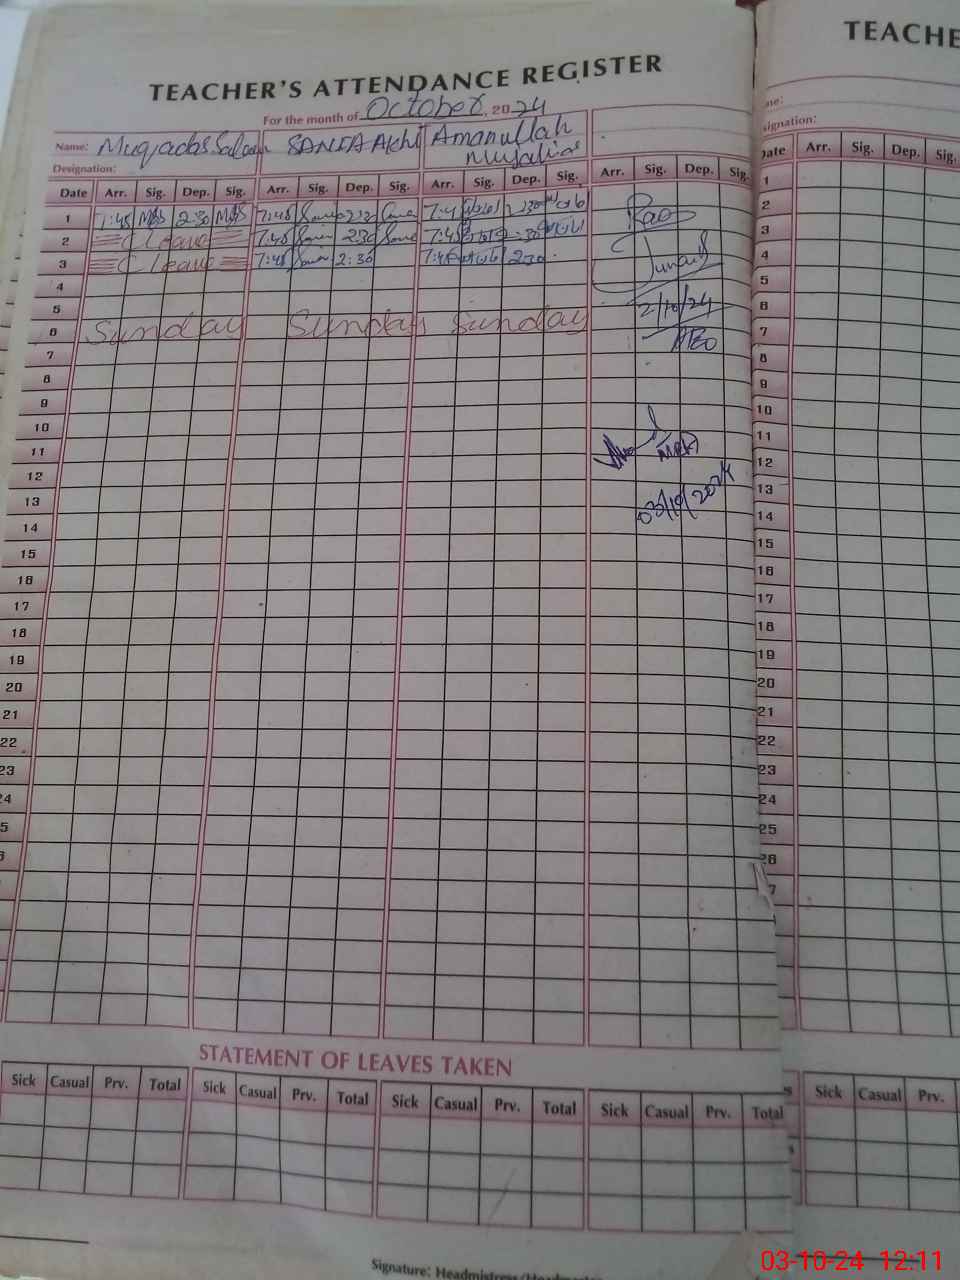 TEACHER'S ATTENDANCE REGISTER
For the month of October, 2024
Name: Muqadas Salam SANIA Akht Amanullah
Designation:
Date Arr. Sig. Dep. Sig. Arr. Sig. Dep. Sig. Arr. Sig. Dep. Sig. Arr. Sig. Dep. Sig.
1 7:45 2:30 7:45 2:30 7:45 2:30
2 C Leave 7:45 2:30 7:45 2:30
3 C Leave 7:45 2:30 7:45 2:30
4
5
6 Sunday Sunday Sunday
7
8
9
10
11
12
13
14
15
16
17
18
19
20
21
22
23
24
5
Rao
Junaid
2/10/24
03/10/2024
STATEMENT OF LEAVES TAKEN
Sick Casual Prv. Total Sick Casual Prv. Total Sick Casual Prv. Total Sick Casual Prv. Total
Signature: Headmistress/Headmaster
TEACHE
me:
signation:
Date Arr. Sig. Dep. Sig.
1
2
3
4
5
6
7
8
9
10
11
12
13
14
15
16
17
18
19
20
21
22
23
24
25
26
7
Sick Casual Prv.
03-10-24 12:11